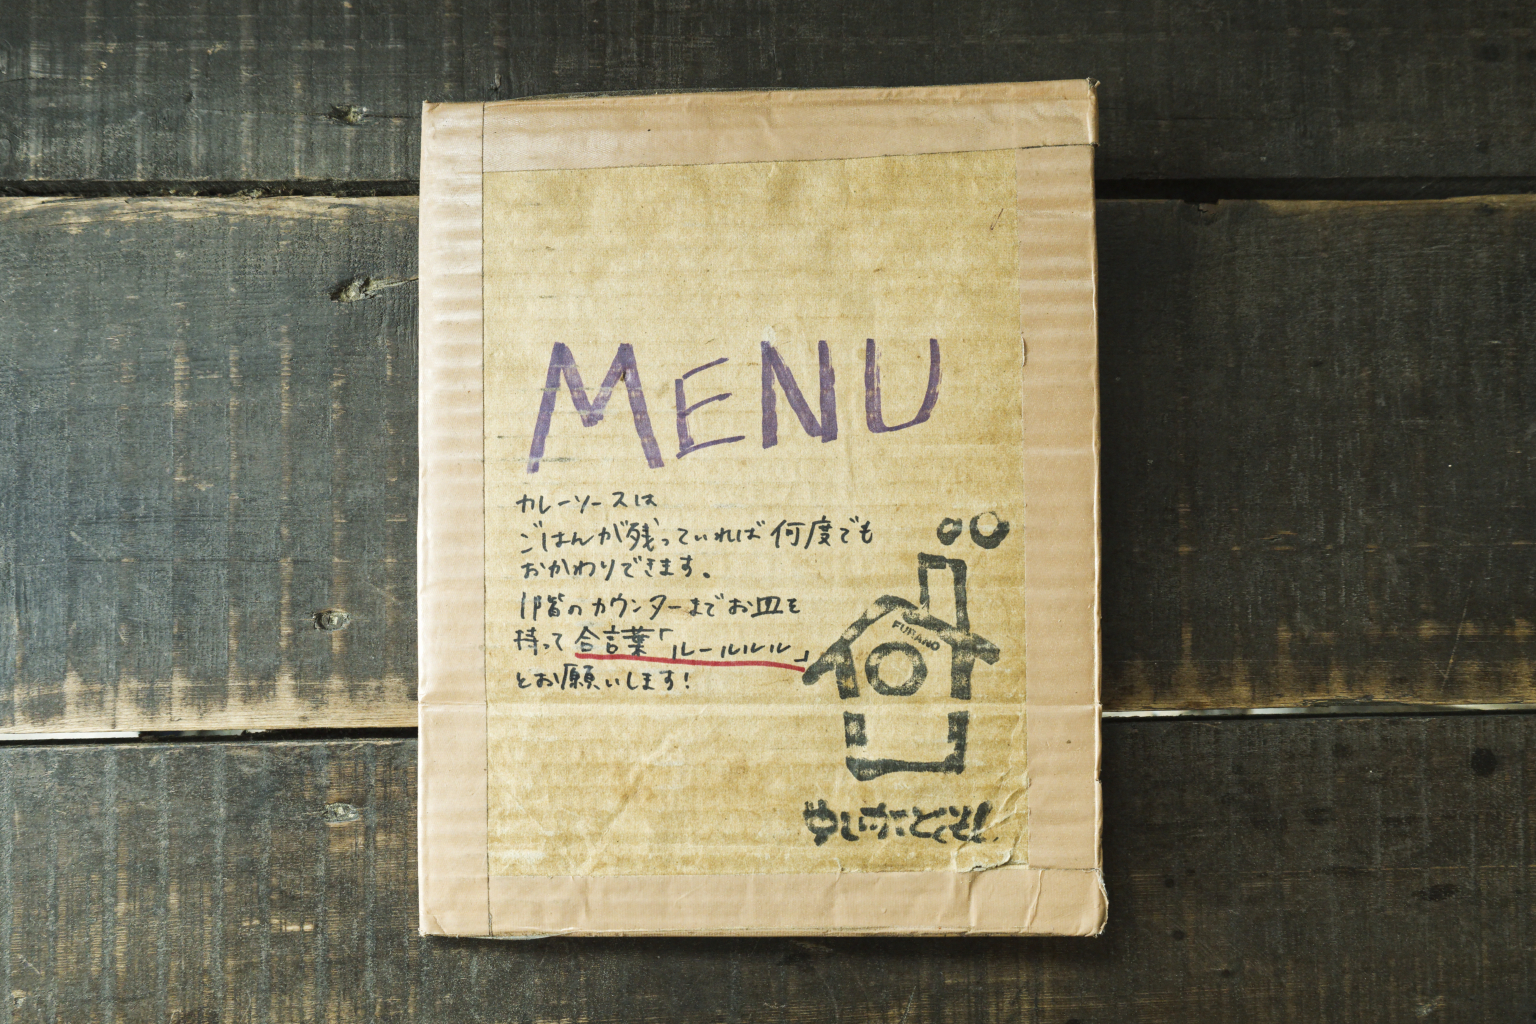 MENU
カレーソースは
ごはんが残っていれば何度でも
おかわりできます。
1階のカウンターまでお皿を
持って合言葉「ルールルル」
とお願いします!
FURANO